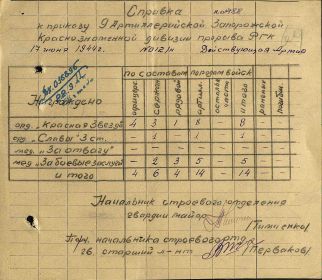 Справка
к приказу 9 Артиллерийской Запорожской
Краснознаменной дивизии прорыва РГК
17 июня 1944г. №012/н Действующая Армия
по составам, родам войск
Награждено
офицеры
сержан.
рядовой
артилл.
остальн. части
итого
раненых
орд. "Красная Звезда" 4 3 1 8 - 8 - -
орд. "Славы" 3 ст. - 1 - 1 - 1 - -
мед. "За отвагу" - - - - - - - -
мед. "За боевые заслуги" - 2 3 5 - 5 - -
итого 4 6 4 14 - 14 - -
Начальник строевого отделения
гвардии майор
/Тимченко/
Пом. начальника строевого отд.
гв. старший л-нт /Перваков/